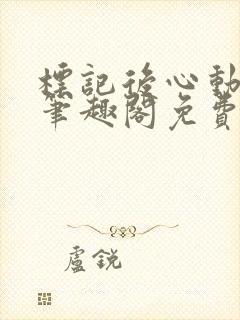 標記後心動
筆趣閣免費
盧銳